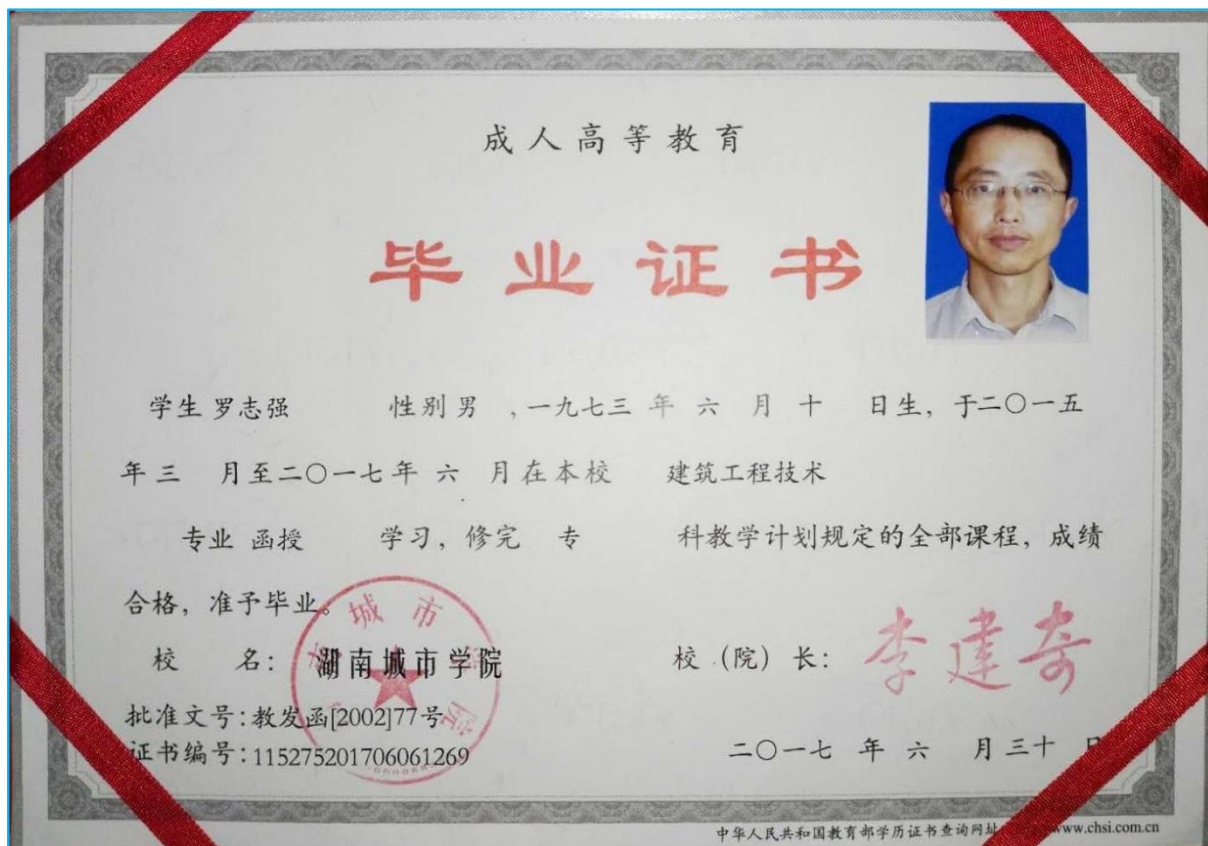 成人高等教育
毕业证书
学生 罗志强 性别 男 ,一九七三 年 六 月 十 日生, 于二〇一五
年 三 月至二〇一七 年 六 月在本校 建筑工程技术
专业 函授 学习, 修完 专 科教学计划规定的全部课程, 成绩
合格, 准予毕业。
城市
校 名: 湖南城市学院 校 (院) 长: 李建奇
批准文号:教发函[2002]77号
证书编号:115275201706061269 二〇一七 年 六 月 三十 日
中华人民共和国教育部学历证书查询网址 www.chsi.com.cn